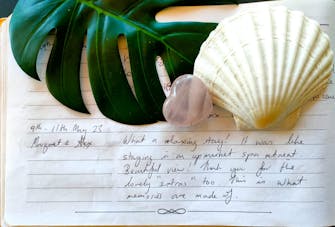 9th - 11th May 23
What a relaxing stay! It was like
staying in an upmarket spa retreat.
Beautiful view! Thank you for the
lovely "extras" too. This is what
memories are made of.